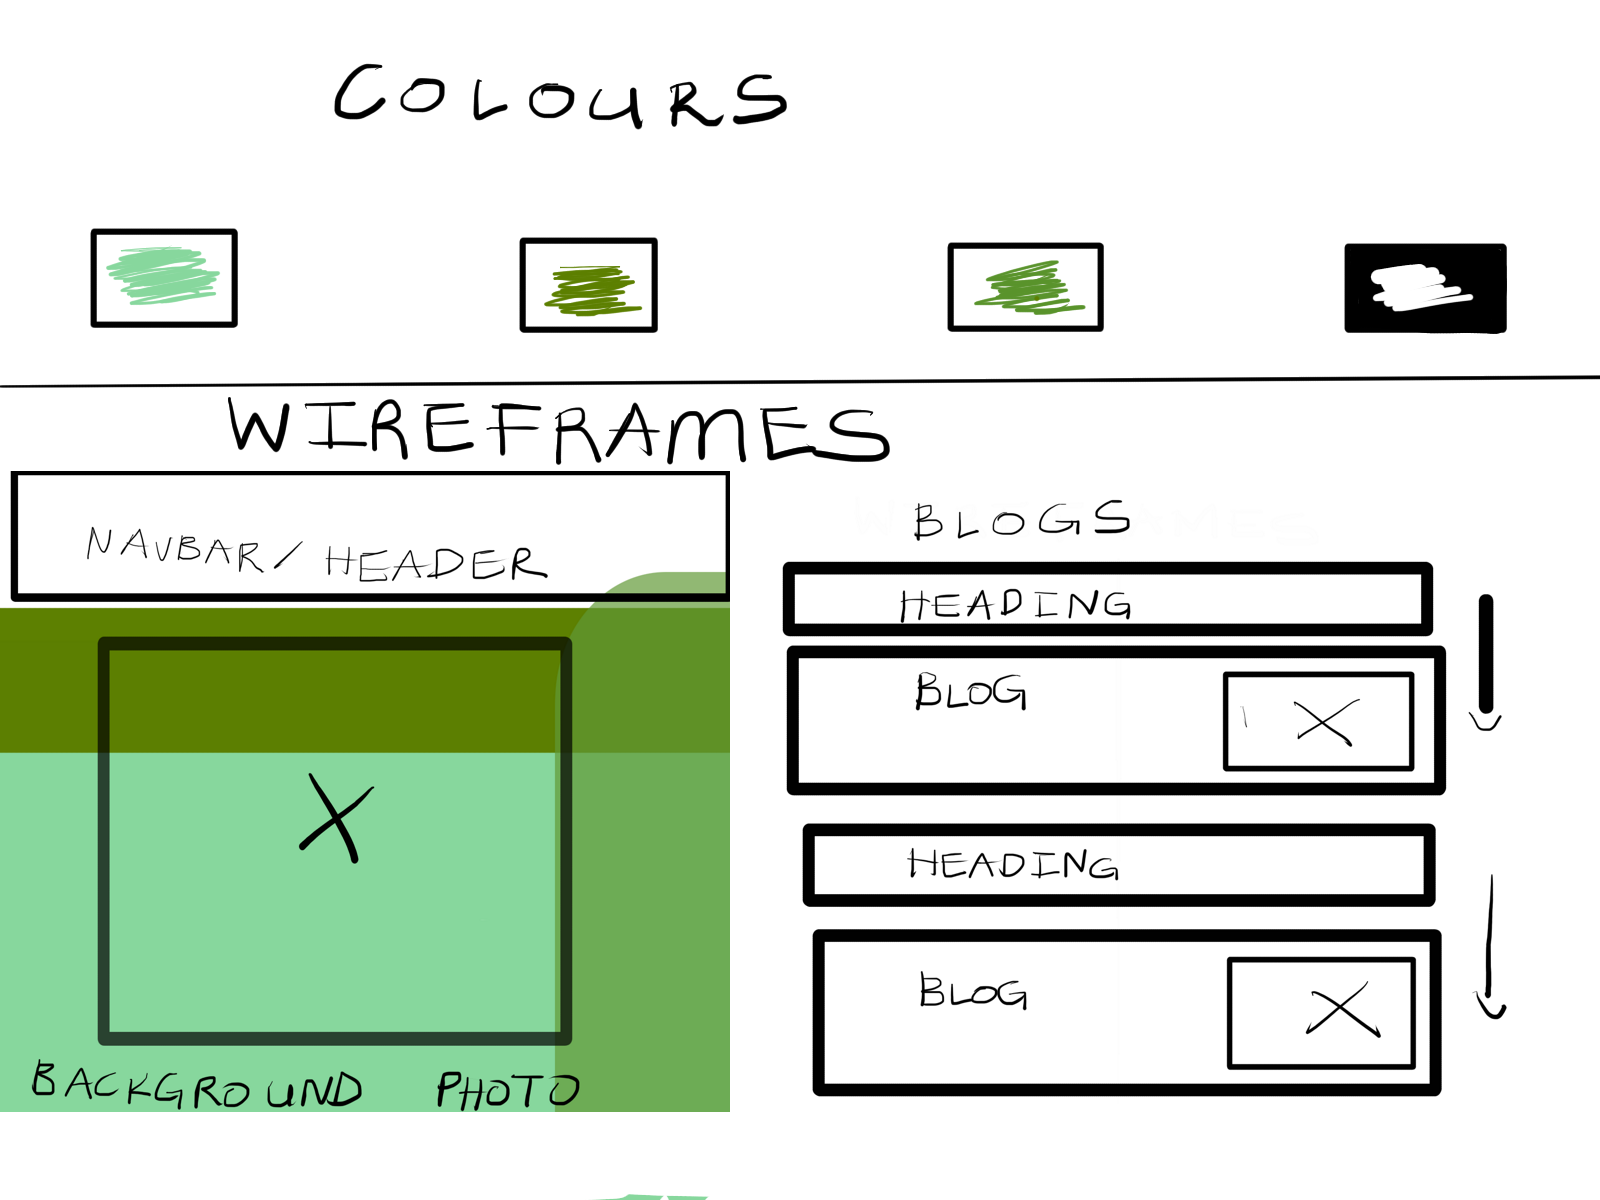 COLOURS
WIREFRAMES
NAVBAR/HEADER
BACKGROUND PHOTO
BLOGS
HEADING
BLOG
HEADING
BLOG